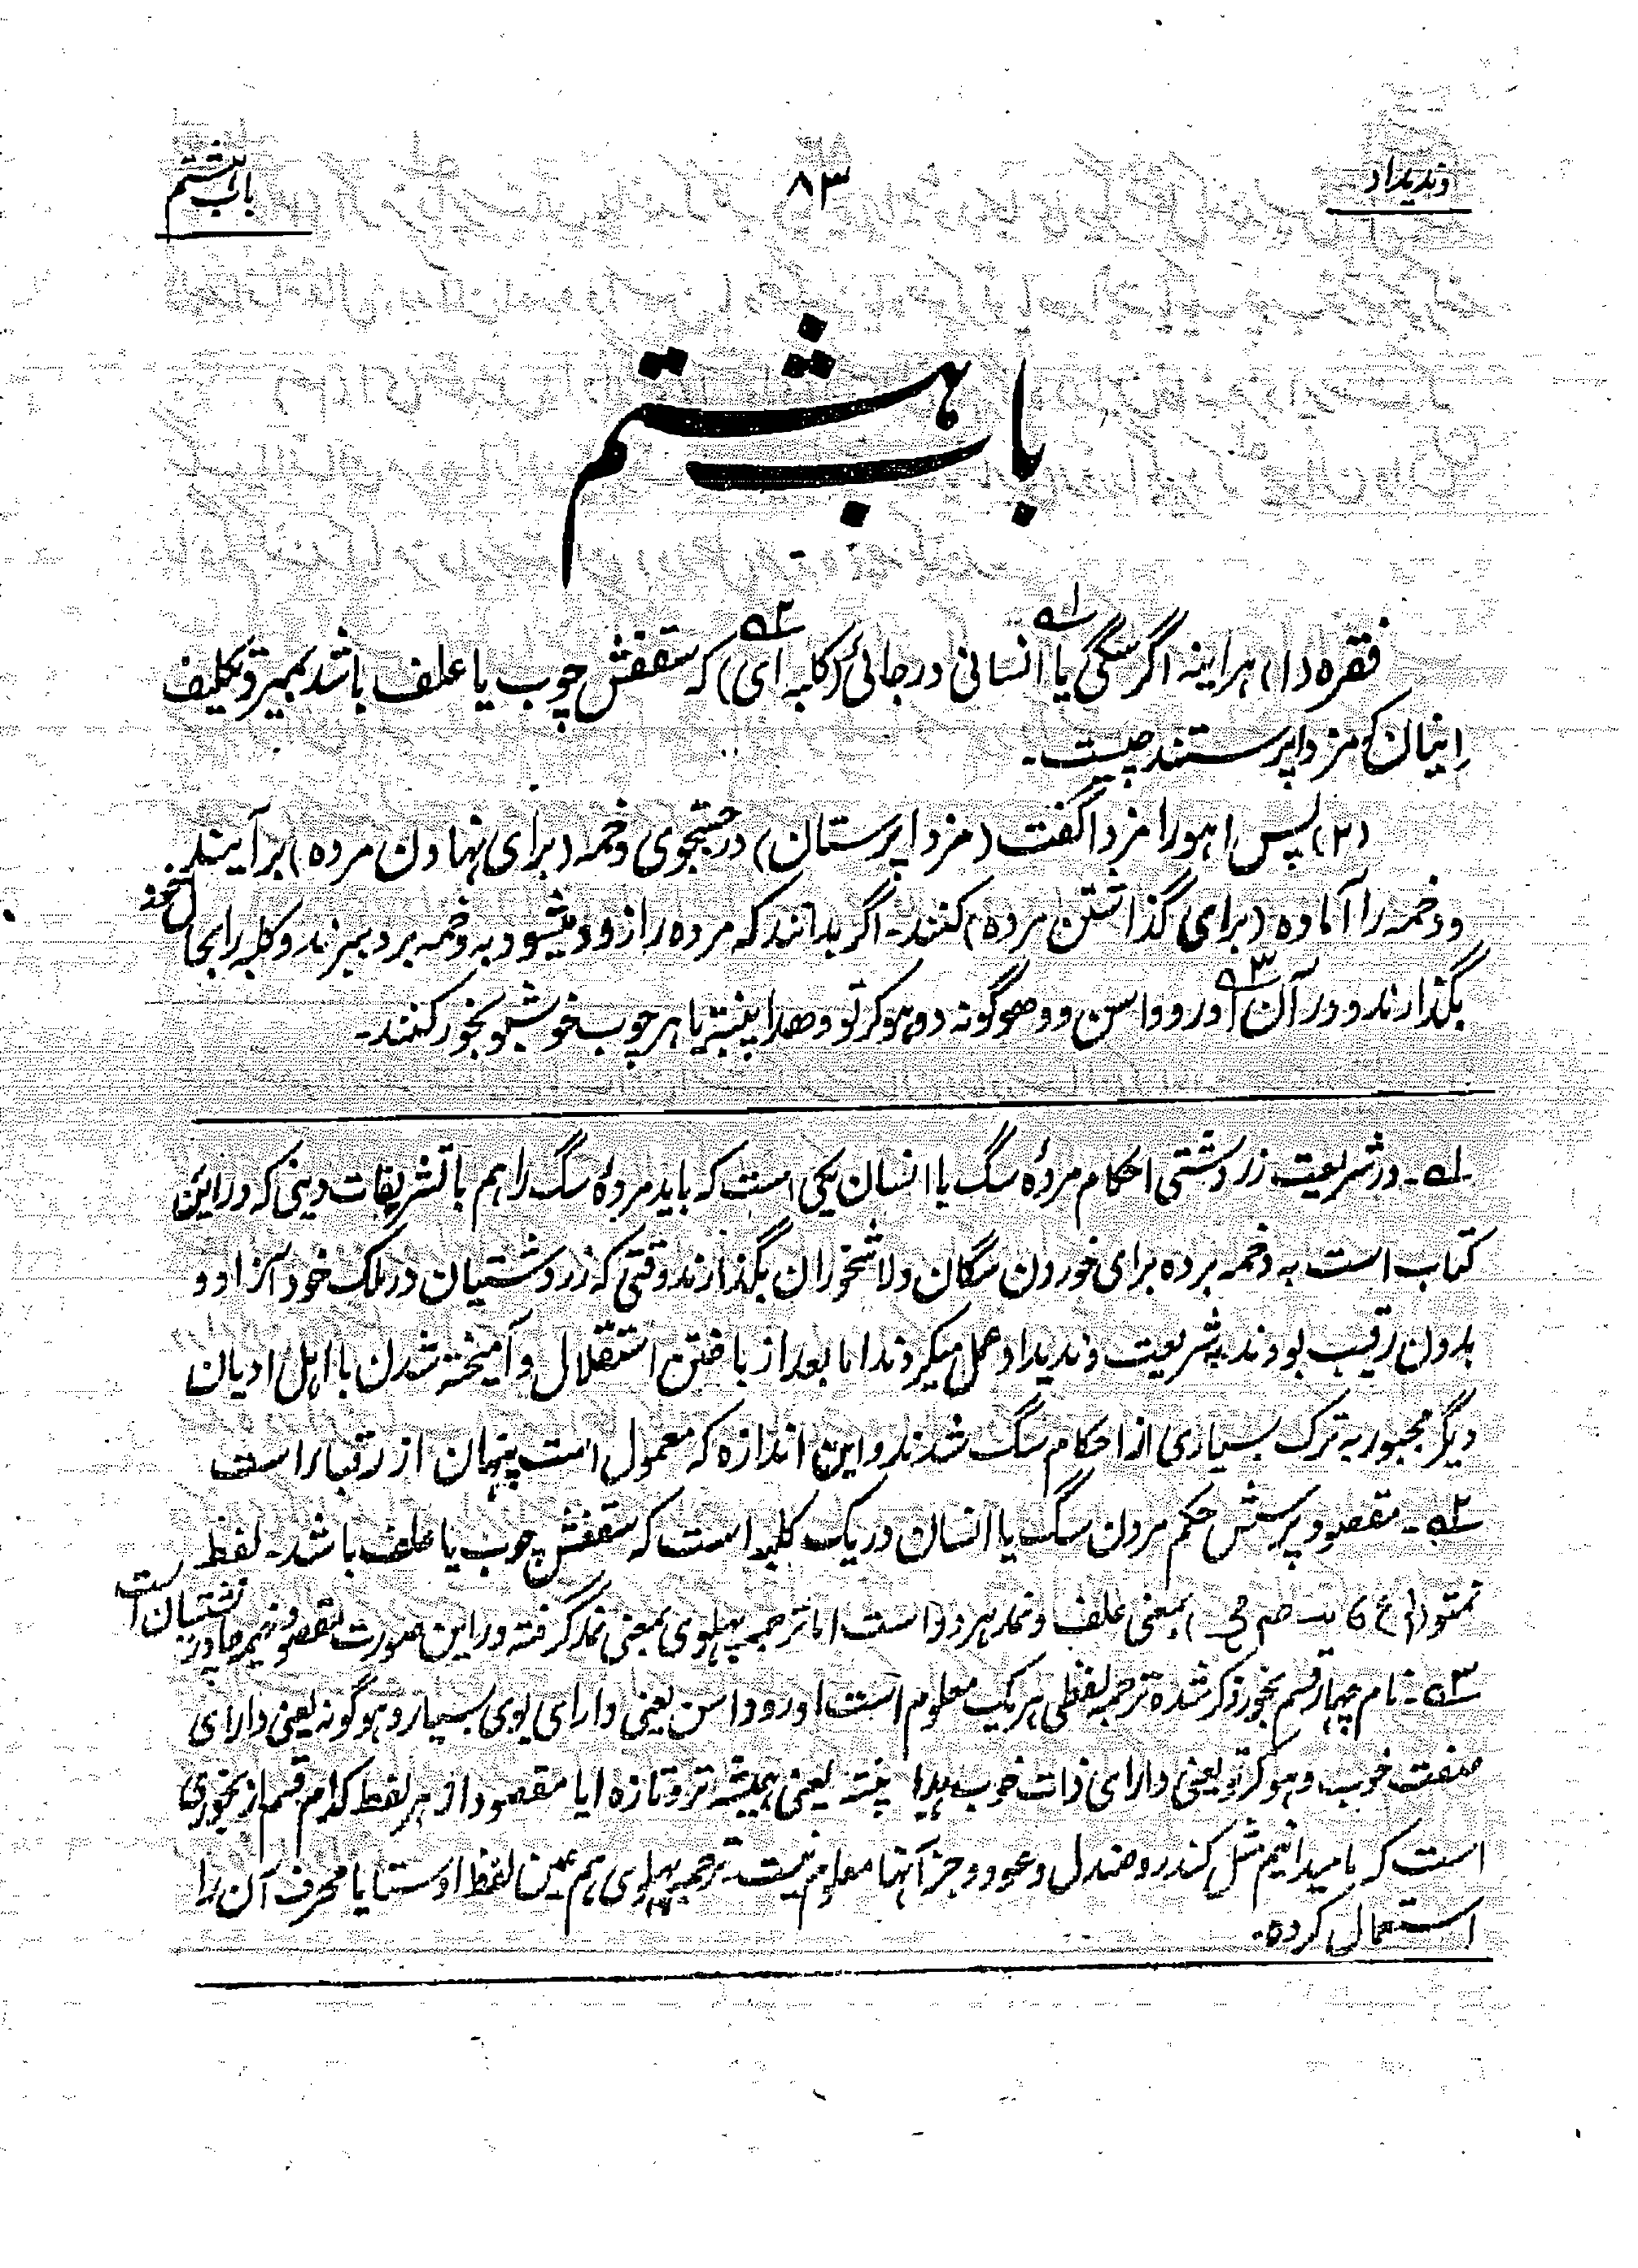 وندیداد
۸۳
باب هشتم
باب هشتم
فقره (۱) هراینه اگر سگی یا انسانی در جائی (کلبه ای) که سقفش چوب یا علف باشد بمیرد تکلیف
اینان که مزدا پرستند چیست۔
(۲) پس اهورا مزدا گفت (مزدا پرستان) در جستجوی دخمه (برای نهادن مرده) برآیند
و دخمه را آماده (برای گذاشتن مرده) کنند۔ اگر بدانند که مرده را زود میشود به دخمه برد ببرند و کلبه را بحال خود
بگذارند و در آن اوروواسن و وهوگونه و وهوکرتو و هدا نپته یا هر چوب خوشبو بخور کنند۔
۱ه۔ در شریعت زردشتی احکام مردهٔ سگ با انسان یکی است که باید مردهٔ سگ را هم با تشریفات دینی که در این
کتاب است به دخمه برده برای خوردن سگان و لاشخوران بگذارند وقتی که زردشتیان در ملک خود آزاد و
بدون رقیب بودند به شریعت وندیداد عمل میکردند اما بعد از باختن استقلال و آمیخته شدن با اهل ادیان
دیگر مجبور به ترک بسیاری از احکام سگ شدند و این اندازه که معمول است پنهان از رقبا را ست
۲ه۔ مقصود پرسش حکم مردن سگ یا انسان در یک کلبه است که سقفش چوب یا علف باشد۔ لفظ
نمتو بمعنی علف و نمد هر دو است اما ترجمه پهلوی بمعنی نمد گرفته در این صورت مقصود خیمه چادر نشینان است
۳ه۔ نام چهار قسم بخور ذکر شده ترجمه لفظی هر یک معلوم است اوروواسن یعنی دارای بوی بسیار و هوگونه یعنی دارای
صفت خوب و هوکرتو یعنی دارای ذات خوب هدا نپته یعنی همیشه تر و تازه اما مقصود از هر لفظ کدام قسم از بخوری
است که ما میدانیم مثل کندر و صندل و عود و جز آنها معلوم نیست۔ ترجمه پهلوی هم عین لفظ اوستا یا محرف آن را
استعمال کرده۔